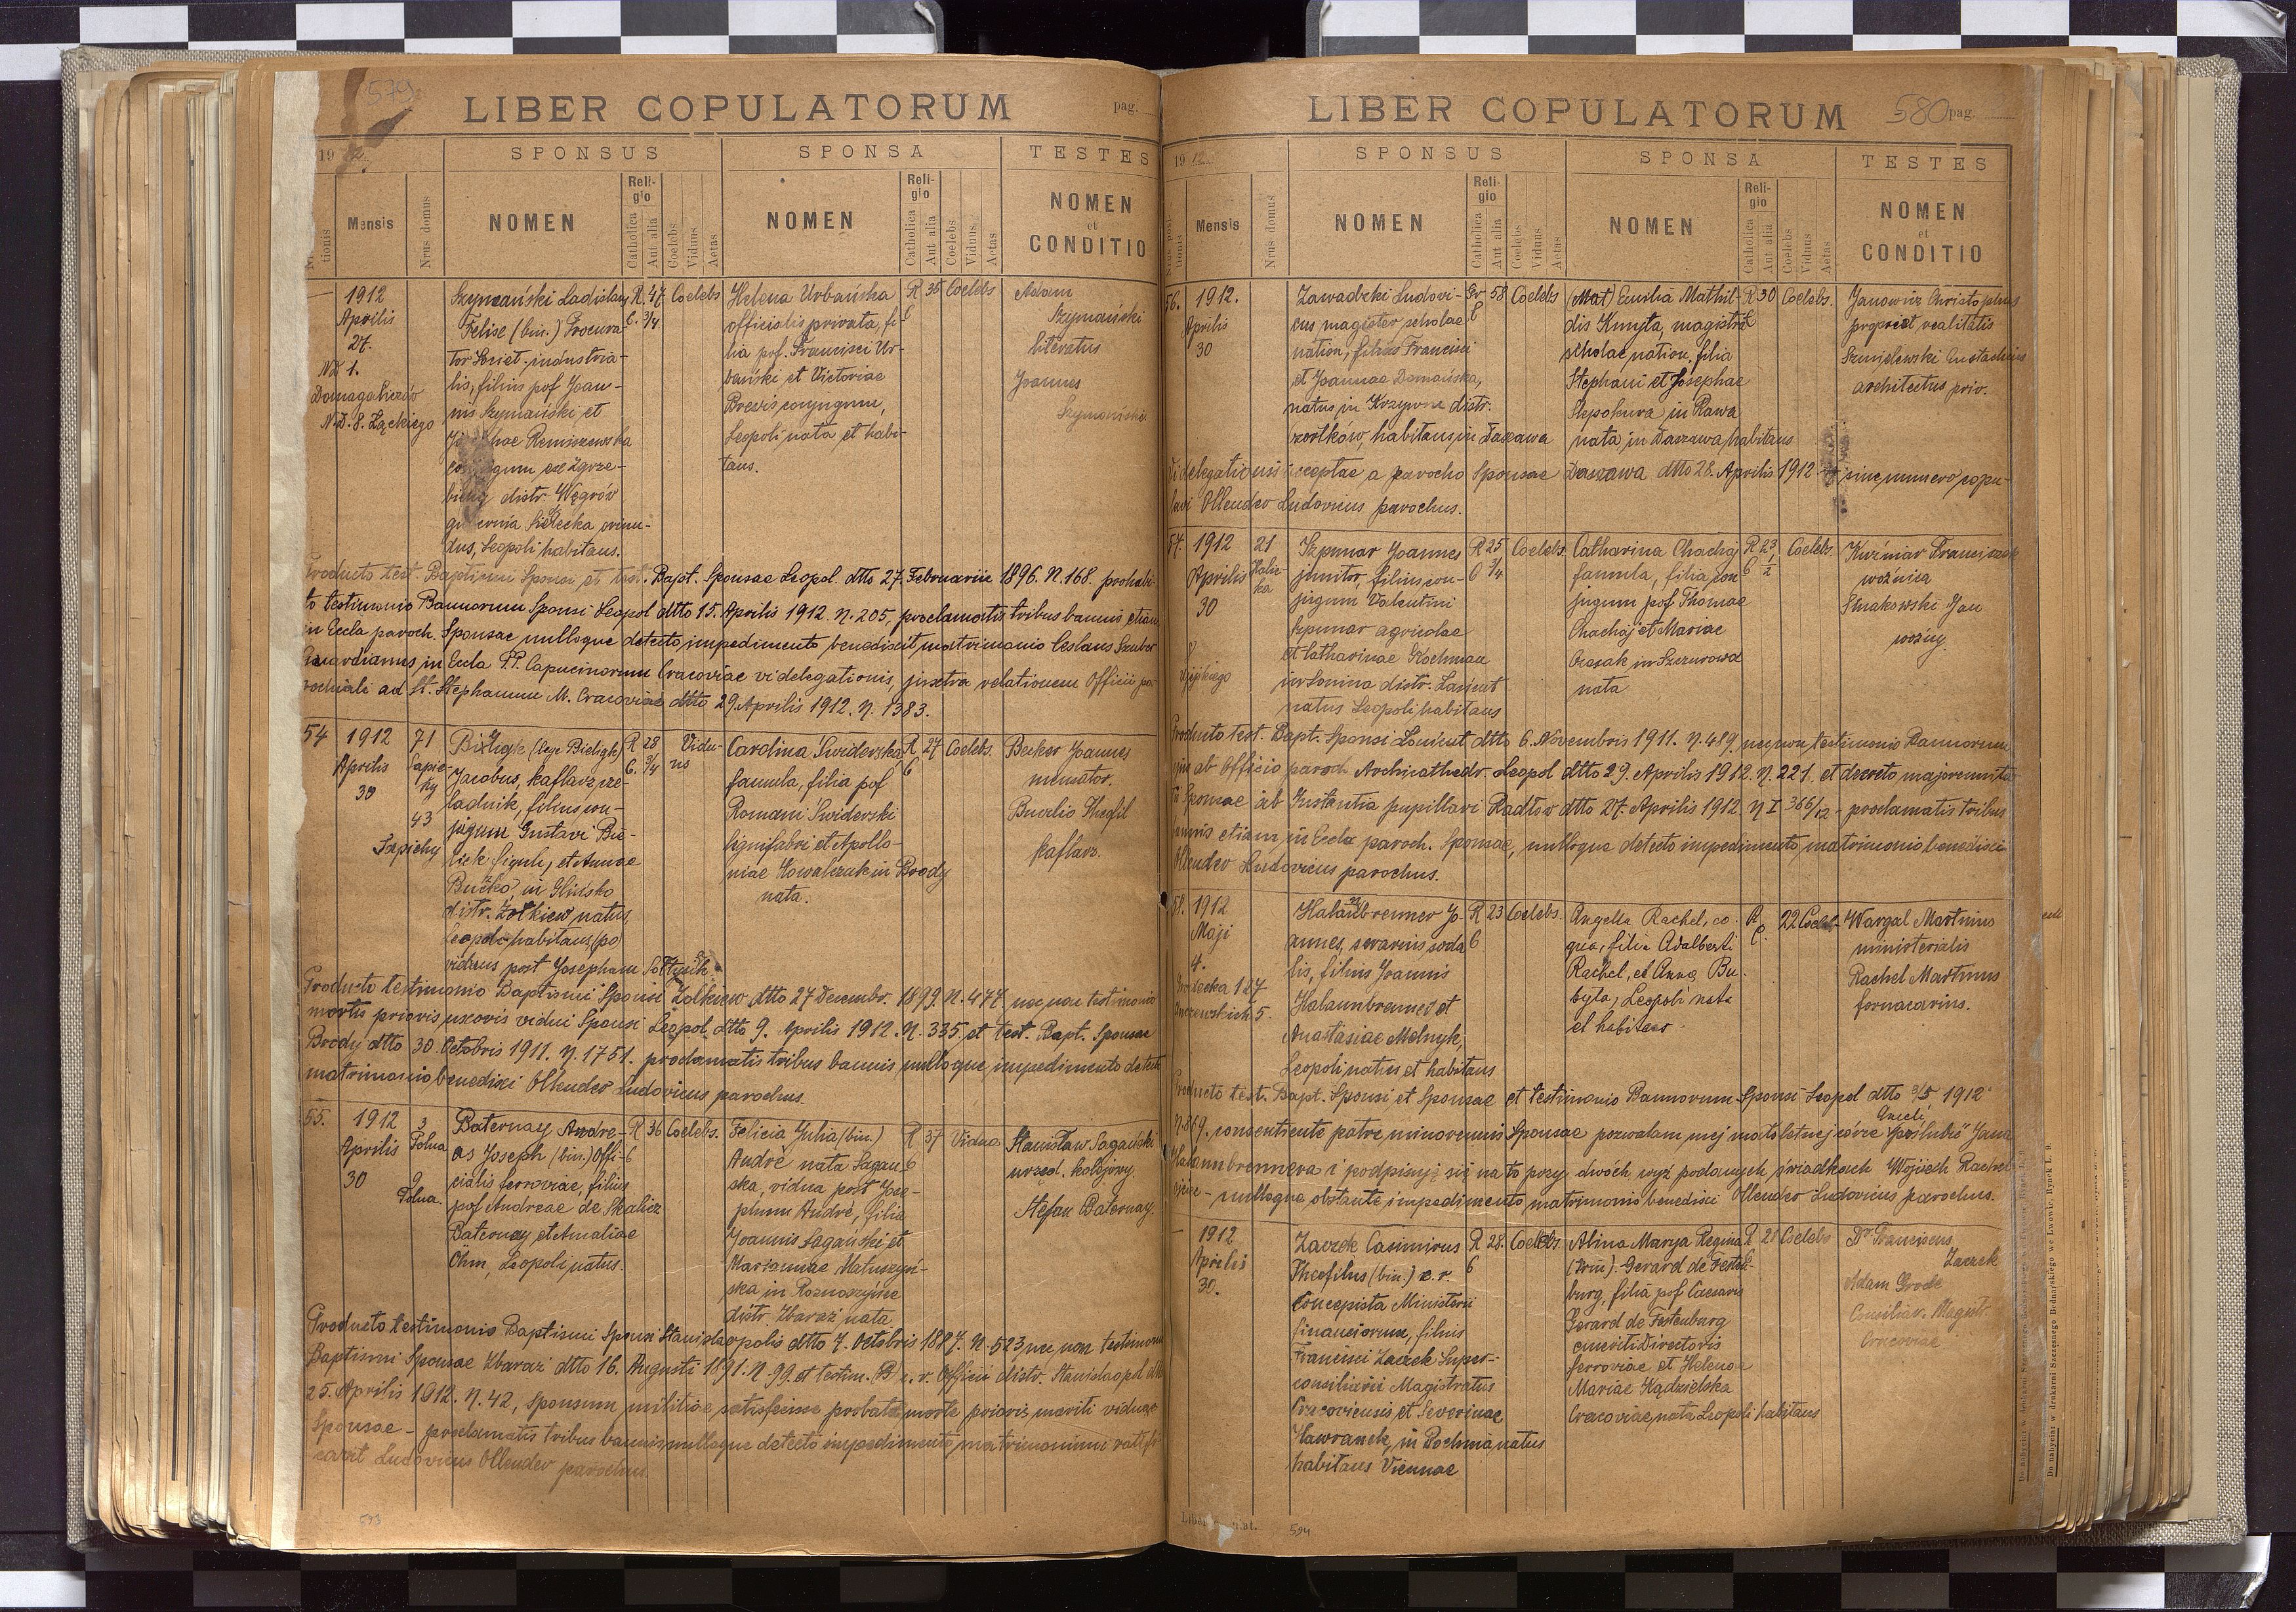 579
LIBER COPULATORUM
pag.
1912
SPONSUS
SPONSA
TESTES
tionis
Mensis
Nrus domus
NOMEN
Religio
Catholica
Aut alia
Coelebs
Viduus
Aetas
NOMEN
Religio
Catholica
Aut alia
Coelebs
Viduus
Aetas
NOMEN
et
CONDITIO
1912
Aprilis
27.
ND 1.
N.D. 8. Łąckiego
Szymański Ladislaus
Felise (bin.) Procura-
tor Societ. industria-
lis, filius pof Joan-
nis Szymański et
Remiszewska
distr. Węgrów
Siedlecka oriun-
dus, Leopoli habitans.
R. C.
47 3/4
Coelebs
Helena Urbańska
officialis privata, fi-
lia pof. Francisci Ur-
bański et Victoriae
Brevis conjugum,
Leopoli nata et habi-
tans.
R C
35
Coelebs
Adam
Szymański
literatus
Joannes
Szymański
Producto test. Baptismi Sponsi et test. Bapt. Sponsae Leopol. dtto 27. Februarii 1896. N. 168. prohabi-
to testimonio Bannorum Sponsi Leopol dtto 15. Aprilis 1912. N. 205, proclamatis tribus bannis etiam
in Eccla paroch. Sponsae nulloque detecto impedimento benedixit matrimonio Ceslaus Szuber
Guardianus in Eccla PP. Capucinorum Cracoviae vi delegationis, juxta relationem Officii pa-
rochialis ad St. Stephanum M. Cracoviae dtto 29. Aprilis 1912. N. 1383.
54
1912
Aprilis
30
71
Sapie-
hy
43
Sapiehy
(seu Bieligk)
Jacobus, kaflarz cze-
ladnik, filius con-
jugum Gustavi Bie-
lick figuli, et Annae
Buczko in Glinsko
distr. Żółkiew natus
Leopoli habitans (po
viduus post Josepham Sołtysik.
R C.
28 3/4
Vidu-
us
Carolina Świderska
famula, filia pof
Romani Świderski
lignifabri et Apollo-
niae Kowalczuk in Brody
nata.
R C
27
Coelebs.
Becker Joannes
murator.
kaflarz.
Producto testimonio Baptismi Sponsi Żółkiew dtto 27 Decembr. 1899. N. 477, nec non testimonio
mortis prioris uxoris vidui Sponsi Leopol. dtto 9. Aprilis 1912. N. 335. et test. Bapt. Sponsae
Brody dtto 30. Octobris 1911. N. 1751. proclamatis tribus bannis, nulloque impedimento detecto
matrimonio benedixi Ollender Ludovicus parochus.
55.
1912
Aprilis
30
3
Polna
9
Polna.
Baternay Andre-
as Joseph (bin.) Offi-
cialis ferroviae, filius
pof Andreae de Skalicz
Baternay et Amaliae
Öhm, Leopoli natus.
R C
36
Coelebs.
Felicia Julia (bin.)
André nata Sagań-
ska, vidua post Jose-
phum André, filia
Joannis Sagański et
Mariannae Matuszyń-
ska in Roznoszyńce
distr. Zbaraż nata
R C
37
Vidua
Stanisław Sagański
urzęd. kolejowy
Stefan Baternay.
Producto testimonio Baptismi Sponsi Stanislaopolis dtto 7. Octobris 1887. N. 523 nec non testimonio
Baptismi Sponsae Zbaraż dtto 16. Augusti 1891. N. 99 et testim. c. r. Officii distr. Stanislaopol dtto
25. Aprilis 1912. N. 42, Sponsum militiae satisfecisse probata morte prioris mariti viduae
Sponsae - proclamatis tribus bannis nulloque detecto impedimento matrimonium ratifi-
cavit Ludovicus Ollender parochus.
593
LIBER COPULATORUM
580 pag.
1912
SPONSUS
SPONSA
TESTES
tionis
Mensis
Nrus domus
NOMEN
Religio
Catholica
Aut alia
Coelebs
Viduus
Aetas
NOMEN
Religio
Catholica
Aut alia
Coelebs
Viduus
Aetas
NOMEN
et
CONDITIO
56.
1912.
Aprilis
30
Zawadzki Ludovi-
cus magister scholae
nation, filius Francisci
et Joannae Domańska,
natus in Krzywne distr.
habitans in Daszawa
Gr C
58
Coelebs
(Mat) Emilia Mathil-
dis Kmyta, magistra
scholae nation. filia
Stephani et Josephae
Slepokura in Rawa
nata in Daszawa habitans
R C
30
Coelebs.
Janowicz Christophus
propriet realitatis
Szmielewski Eustachius
architectus priv.
Vi delegationis acceptae a parocho Sponsae Daszawa dtto 28. Aprilis 1912 sine numero copu-
lavi Ollender Ludovicus parochus.
57.
1912
Aprilis
30
21
Halic-
ka
8
Szpunar Joannes
junitor, filius con-
jugum Valentini
Szpunar agricolae
et Catharinae Kochman
in Sonina distr. Łańcut
natus Leopoli habitans
R C
25 3/4
Coelebs.
Catharina Chachaj
famula, filia con
jugum pof Thomae
Chachaj et Mariae
Ozasak in Szczurowa
nata
R C
23 1/2
Coelebs.
Kuźniar Franciszek
woźnica
Smakowski Jan
woźny.
Producto test. Bapt. Sponsi Łańcut dtto 6. Novembris 1911. N. 489. nec non testimonio Bannorum
ejus ab Officio paroch. Archicathedr. Leopol dtto 29. Aprilis 1912. N. 221. et decreto majorennita-
tis Sponsae ab Instantia pupillari Radłów dtto 27. Aprilis 1912. N I 366/12 - proclamatis tribus
bannis etiam in Eccla paroch. Sponsae, nulloque detecto impedimento matrimonio benedixi
Ollender Ludovicus parochus.
58.
1912
Maji
4.
Gródecka 127
5.
Halaunbrenner Jo-
annes, serarius soda
lis, filius Joannis
Halaunbrenner et
Anastasiae Melnyk,
Leopoli natus et habitans
R C
23
Coelebs.
Angella Rachel, co-
qua, filia Adalberti
Rachel, et Anna Bu-
była, Leopoli nata
et habitans.
R C.
22
Coelebs
Wargal Martinus
ministerialis
Rachel Martinus
fornacarius.
Producto test. Bapt. Sponsi et Sponsae et testimonio Bannorum Sponsi Leopol dtto 3/5 1912
N. 869. consentiente patre minorennis Sponsae pozwalam mej małoletniej córce Anieli poślubić Jana
Halaunbrennera i podpisuję się na to przy dwóch wyż podanych świadkach Wojciech Rachel
ojciec - nulloque obstante impedimento matrimonio benedixi Ollender Ludovicus parochus.
1912
Aprilis
30.
Zaczek Casimirus
Theofilus (bin.) c. r.
Concepista Ministerii
financiarum, filius
Francisci Zaczek Super-
consiliarii Magistratus
Cracoviensis et Severinae
Hawranek, in Bochnia natus
habitans Viennae
R C
28.
Coelebs.
Alina Marya Regina
(trin). Gerard de Festen-
burg, filia pof Caesaris
Gerard de Festenburg
emeriti Directoris
ferroviae et Helenae
Mariae Kądzielska
Cracoviae nata Leopoli habitans
R C
21
Coelebs
Dr Franciscus
Zaczek
Adam Grode
Consiliar. Magistr.
Cracoviae
Liber
594
Do nabycia w drukarni Szczęsnego Bednarskiego we Lwowie, Rynek L. 9.